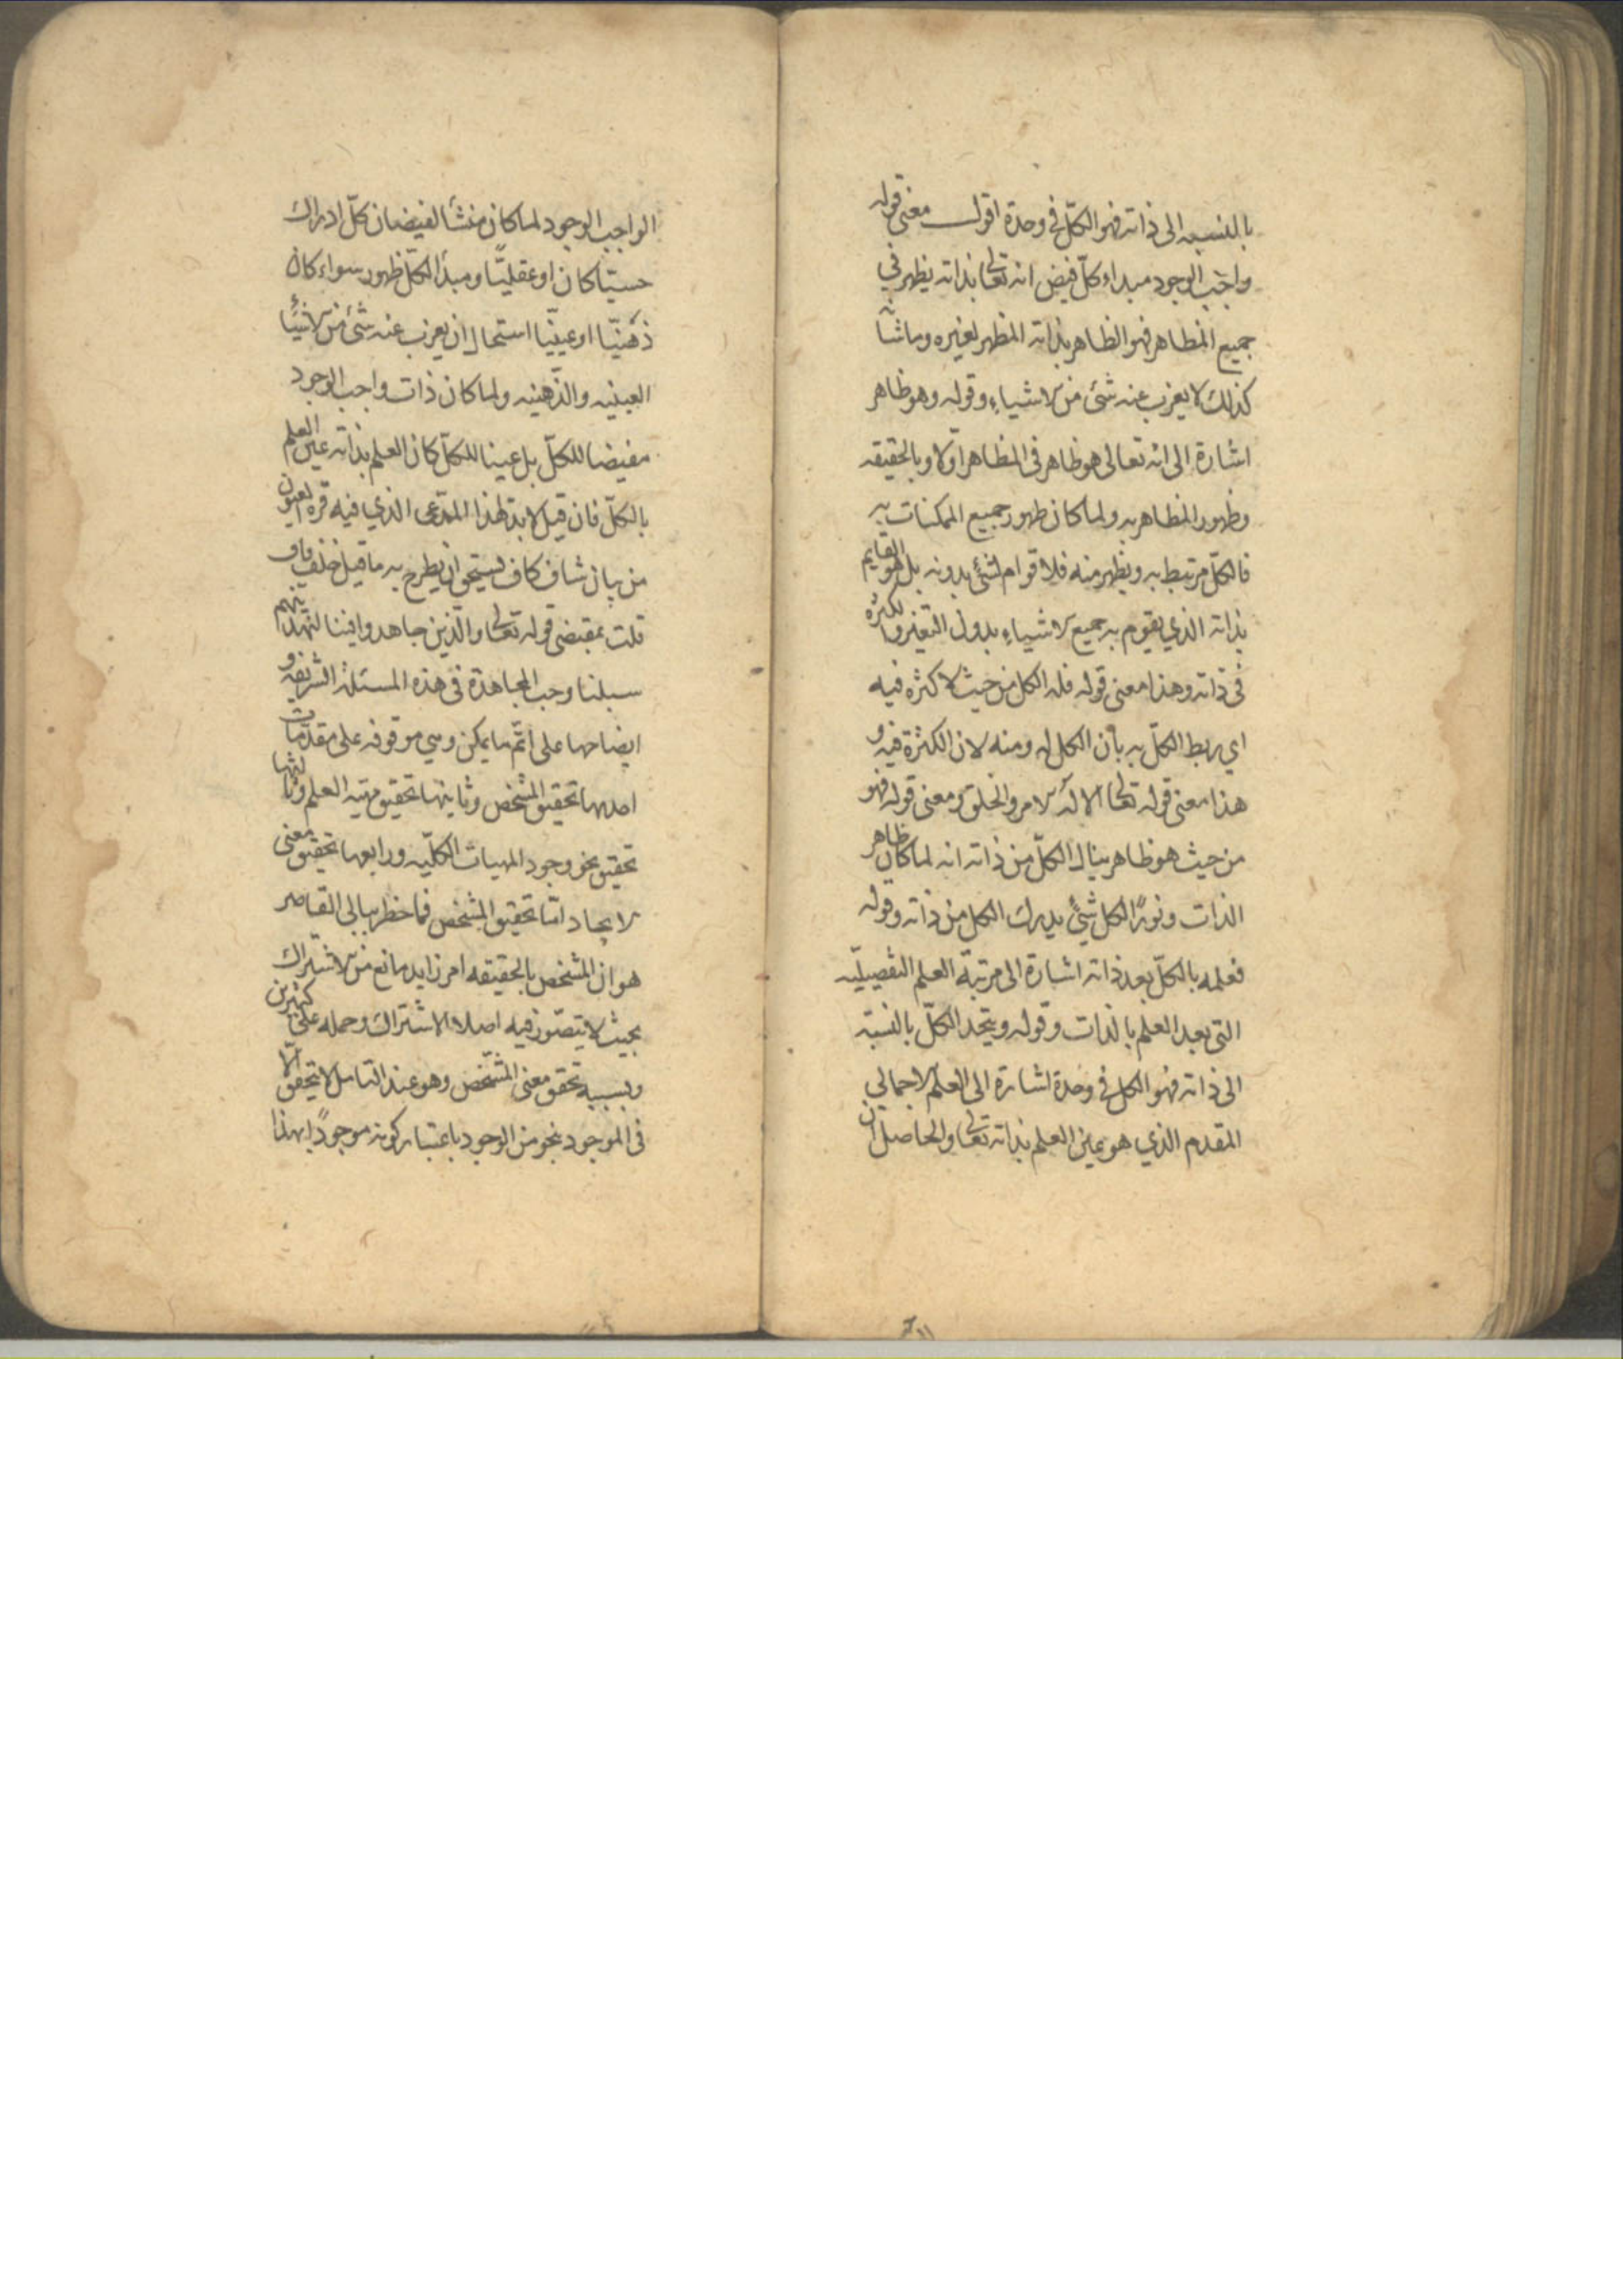 بالنسبه الى ذاته فهو الكلّ في وحدة اقول معنى قوله
واجب الوجود مبداء كلّ فيض انه تعالى بذاته يظهر في
جميع المظاهر فهو الظاهر بذاته المظهر لغيره وما شانه
كذلك لا يعزب عنه شئ من الاشياء وقوله وهو ظاهر
اشارة الى انه تعالى هو ظاهر في المظاهر اوّلا وبالحقيقه
وظهور المظاهر به ولما كان ظهور جميع الممكنات به
فالكلّ مرتبط به ويظهر منه فلا قوام لشئ بدونه بل هو القايم
بذاته الذي يقوم به جميع الاشياء بدون التغير والكثرة
في ذاته وهذا معنى قوله فله الكل من حيث لا كثرة فيه
اي ربط الكلّ به بأن الكل له ومنه لان الكثرة فيه و
هذا معنى قوله تعالى الا له الامر والخلق ومعنى قوله فهو
من حيث هو ظاهر ينال الكلّ من ذاته انه لما كان ظاهر
الذات ونورًا لكل شئ يدرك الكل من ذاته وقوله
فعلمه بالكلّ بعد ذاته اشارة الى مرتبة العلم التفصيليّه
التى بعد العلم بالذات وقوله ويتحد الكلّ بالنسبة
الى ذاته فهو الكل في وحدة اشارة الى العلم الاجمالي
المقدم الذي هو عين العلم بذاته تعالى والحاصل ان
الواجب الوجود لما كان منشأ لفيضان كلّ ادراك
حسيّا كان او عقليّا ومبدأ لكلّ ظهور سواء كان
ذهنيّا او عينيّا استحال ان يعزب عنه شئ من الاشيا
العينيه والذّهنيه ولما كان ذات واجب الوجود
مفيضا للكلّ بل عينا للكلّ كان العلم بذاته عين العلم
بالكلّ فان قيل لا بد لهذا المدّعى الذي فيه قرة العيون
من بيان شاف كاف يستحق ان يطرح به ما قيل خلف قاف
قلت بمقتضى قوله تعالى والّذين جاهدوا فينا لنهدينهم
سبلنا وجب المجاهدة في هذه المسئلة الشريفه و
ايضاحها على اتمّ ما يمكن وهي موقوفه على مقدّمات
احدها تحقيق المشخص وثانيتها تحقيق مهية العلم وثالثها
تحقيق نحو وجود المهيات الكلّيه ورابعها تحقيق معنى
الايجاد امّا تحقيق المشخص فما خطر ببالى القاصر
هو ان المشخص بالحقيقه امر زايد مانع من الاشتراك
بحيث لا يتصّور فيه اصلا الاشتراك وحمله على كثيرين
وبسببه تحقق معنى المشخّص وهو عند التامل لا يتحقق الّا
في الموجود بنحو من الوجود باعتبار كونه موجودًا بهذا